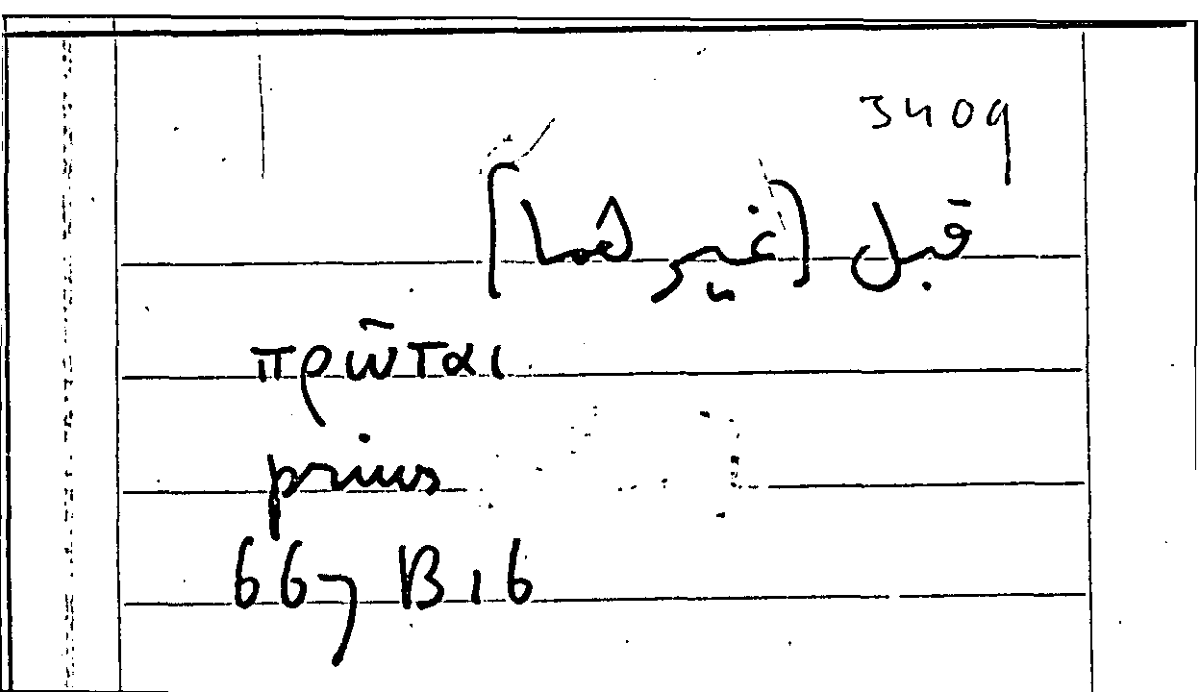 3409
قبل [غيرهما]
πρῶται
prius
667 B 16